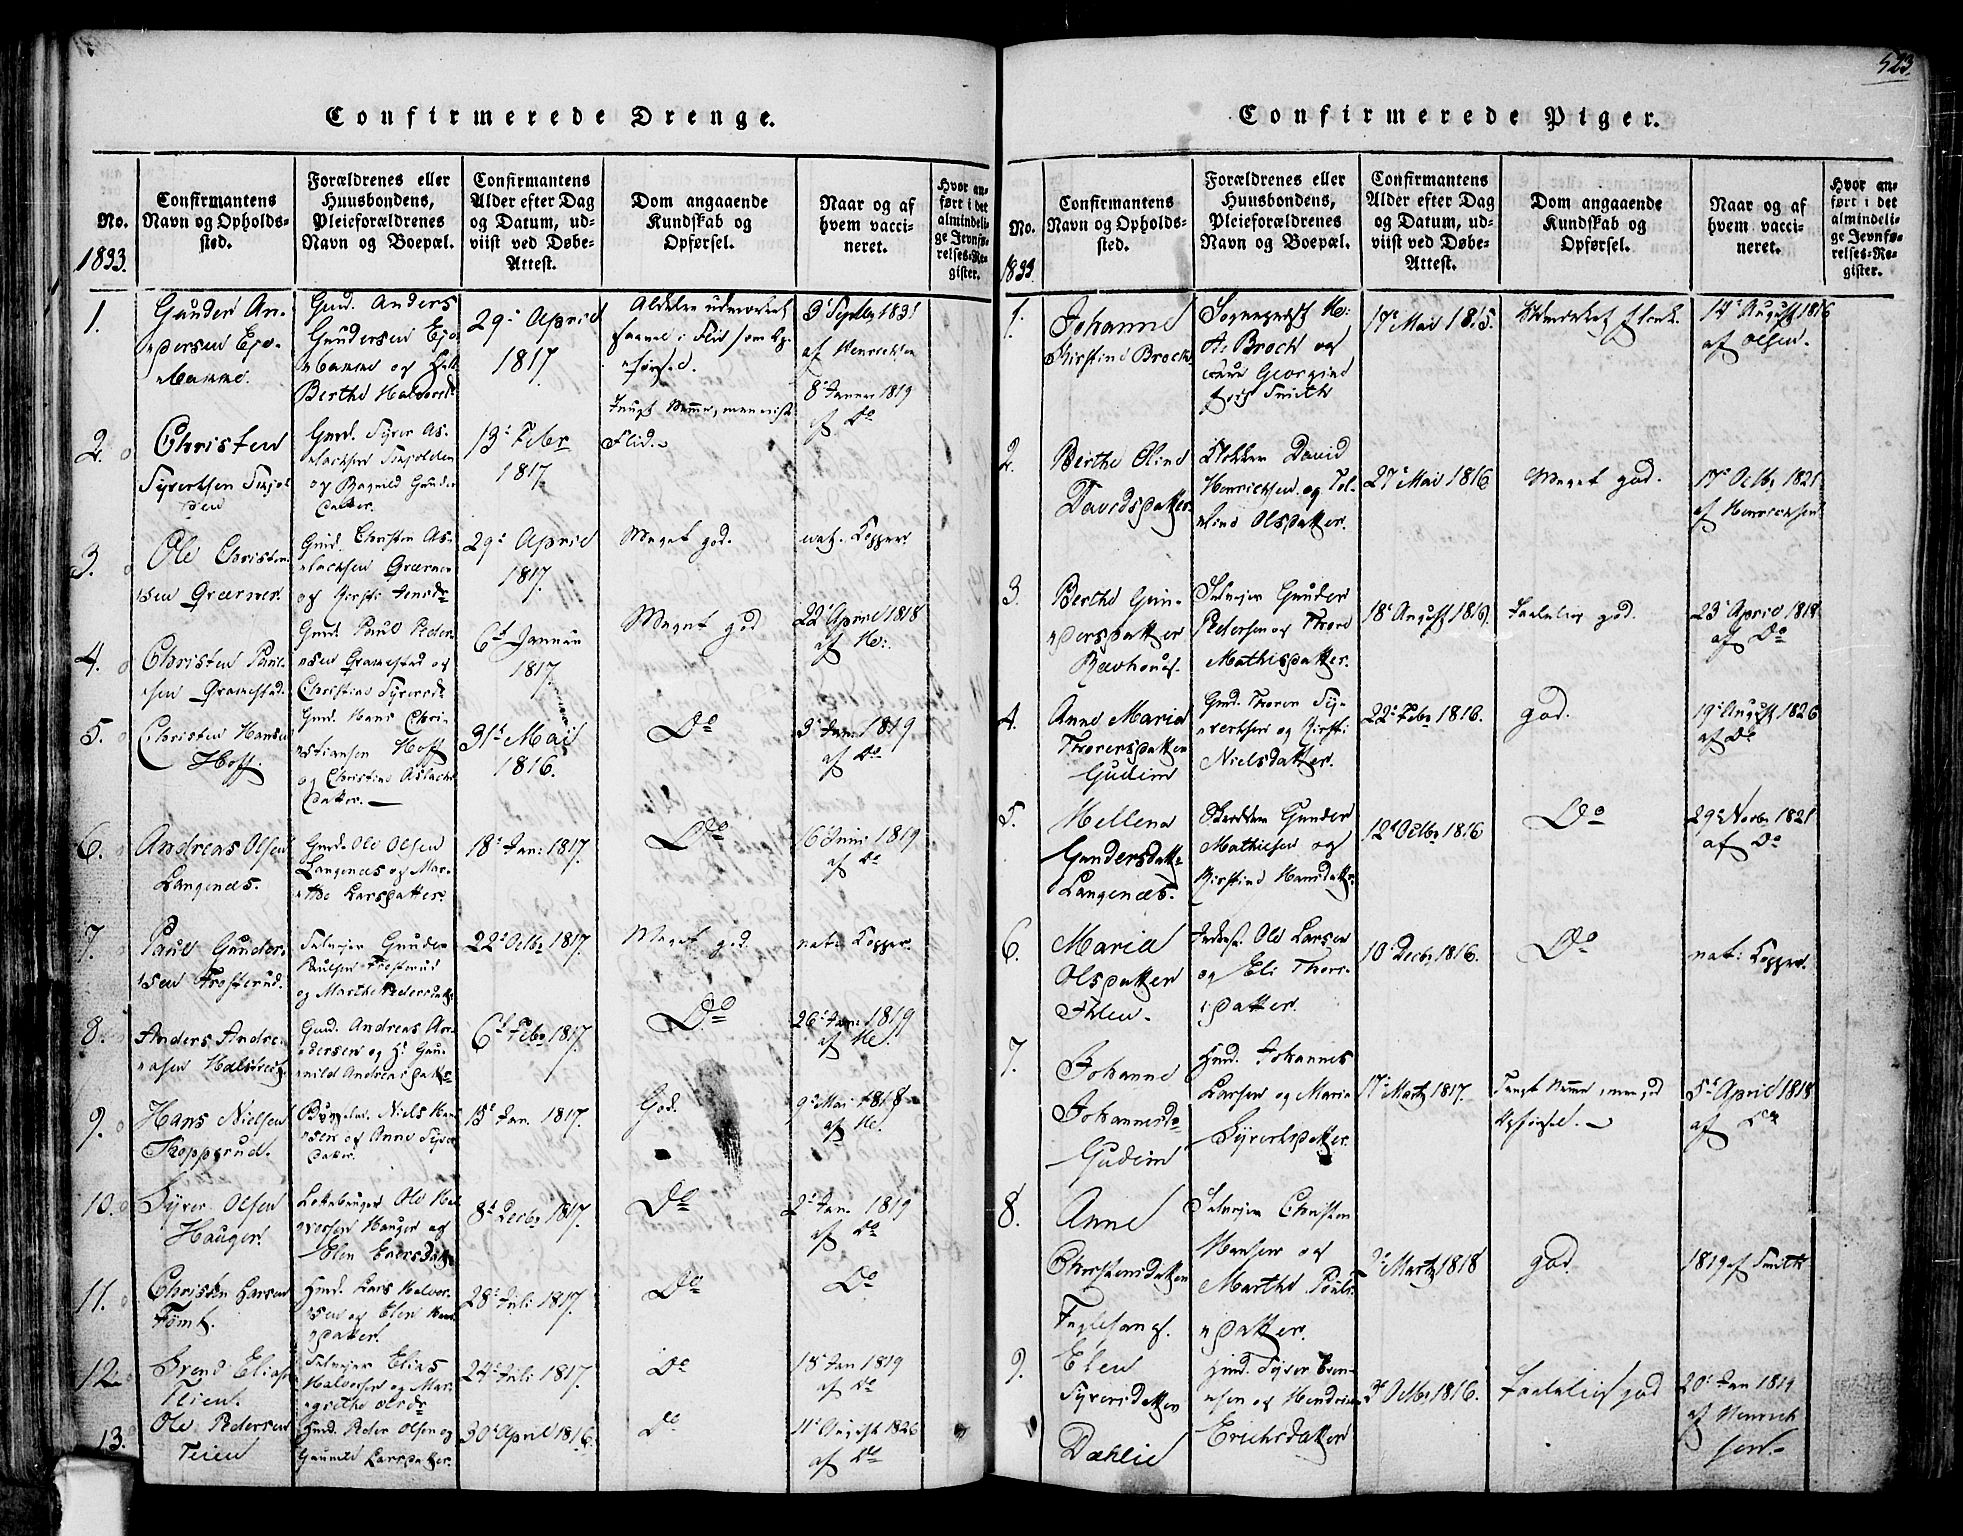 523.
Confirmerede Drenge.
No.
1833.
Confirmantens
Navn og Opholds-
sted.
Forældrenes eller
Huusbondens,
Pleieforældrenes
Navn og Boepæl.
Confirmantens
Alder efter Dag
og Datum, ud-
viist ved Døbe-
Attest.
Dom angaaende
Kundskab og
Opførsel.
Naar og af
hvem vacci-
neret.
Hvor an-
ført i det
almindeli-
ge Jevnfø-
relses-Re-
gister.
1.
Gunder An-
dersen Ejo-
Gmd. Anders
Gundersen Ejo-
og
Berthe Halvorsd.
29de April
1817.
af Henrichsen
8de Januar 1819
af Do
2.
Christen
Syvertsen
Gmd. Syver As-
lachsen
og Ragnild Gunders
datter.
13de Febr
1817.
Flid.
3.
Ole Christen-
sen Grærner.
Gmd. Christen As-
lachsen Grærner
og Kirsti Jensdr
29de April
1817.
Meget god.
nat. Kopper
4.
Christen Paul-
sen Gramestad.
Gmd. Paul Peder-
sen Gramestad og
Christine Syversdr
6te Januar
1817.
Meget god
22de April 1818
af He:
5.
Christen Hansen
Hoff.
Gmd. Hans Chri-
stiansen Hoff
og Christine Aslachs
datter.
31te Mai
1816.
Do
3de Jan: 1819
af Do
6.
Andreas Olsen
Langenæs.
Gmd. Ole Olsen
Langenæs og Mar-
the Larsdatter.
18de Jan: 1817.
Do
16 Juni 1819
af Do
7.
Paul Gunder-
sen Frosterud.
Selvejer Gunder
Paulsen Frosterud
og Marthe Pedersdatter
22de Octbr 1817.
Meget god.
nat: Kopper.
8.
Anders Andre-
asen
Gmd. Andreas An-
dersen og Gun-
nild Andreasdatter
6te Febr 1817.
Do
26de Jan: 1819
af He.
9.
Hans Nielsen
Thoppgrud.
Niels Han-
sen og Anne Syver
datter.
15de Jan. 1817.
God.
9de Mai 1818
af He.
10.
Syver Olsen
Hauger.
Ole Hal-
vorsen Hauger og
Elen Eversdatter
8de Decbr 1817.
Do
2de Jan. 1819
af Do
11.
Christen Larsen
Tømt.
Hmd. Lars Halvor-
sen og Elen Hans
datter.
28de Juli 1817.
Do
Do
12.
Svend Elias
Teien.
Selvejer Elias
Halvorsen og Mar-
grethe Olsdr
24de Juli 1817.
Do
18de Jan 1819
af Do
13.
Ole Pedersen
Teien
Hmd. Peder Olsen og
Gunnild Larsdatter.
30de April 1816.
Do
11te August 1826
af Do
Confirmerede Piger.
No.
1833
Confirmantens
Navn og Opholds-
sted.
Forældrenes eller
Huusbondens,
Pleieforældrenes
Navn og Boepæl.
Confirmantens
Alder efter Dag
og Datum, ud-
viist ved Døbe-
Attest.
Dom angaaende
Kundskab og
Opførsel.
Naar og af
hvem vacci-
neret.
Hvor an-
ført i det
almindeli-
ge Jevnfø-
relses-Re-
gister.
1.
Johanne
Kirstine Brock
Sogneprest
Brock og
Georgine
født Smith
17de Mai 1815.
Udmærket flink.
17de August 1816
af Olsen.
2.
Berthe Oline
Davidsdatter.
Klokker David
Henrichsen og
Olsdatter.
27de Mai 1816
Meget god.
17de Octbr 1821
af Henrichsen
3.
Berthe Gun-
dersdatter
Rævhoug.
Selvejer Gunder
Pedersen og Thore
Mathisdatter.
18de August 1816.
Taalelig god.
23de April 1818
af Do
4.
Anne Maria
Thorersdatter
Gudim
Gmd. Thorer Sy-
vertsen og Kirsti
Nielsdatter.
22de Febr 1816.
god.
19de August 1826
af Do
5.
Hellena
Gundersdatter
Langenæs.
Skredder Gunder
Mathiesen og
Kirstine Hansdatter
12te Octbr 1816
Do
29de Novbr 1821
af Do
6.
Maria
Olsdatter
Ihlen.
Ole Larsen
og Eli Thors-
datter.
10de Decbr 1816.
Do
nat: Kopper.
7.
Johanne
Johannesdr
Gudim
Hmd. Johannes
Larsen og Maria
Syvertsdatter.
17de Martz 1817.
Svagt Nemme, men god
Opførsel.
5te April 1818
af Do
8.
Anne
Christensdatter
Fuglesang.
Selvejer Christen
Hansen og
Marthe Pouls-
datter.
2de Martz 1818
god.
1819 af Smith
9.
Elen
Syversdatter
Dæhlie
Hmd. Syver Even-
sen og Hendrine
Erichsdatter
3de Octbr 1816.
Taalelig god
20de Jan 1819
af Henrich
sen.